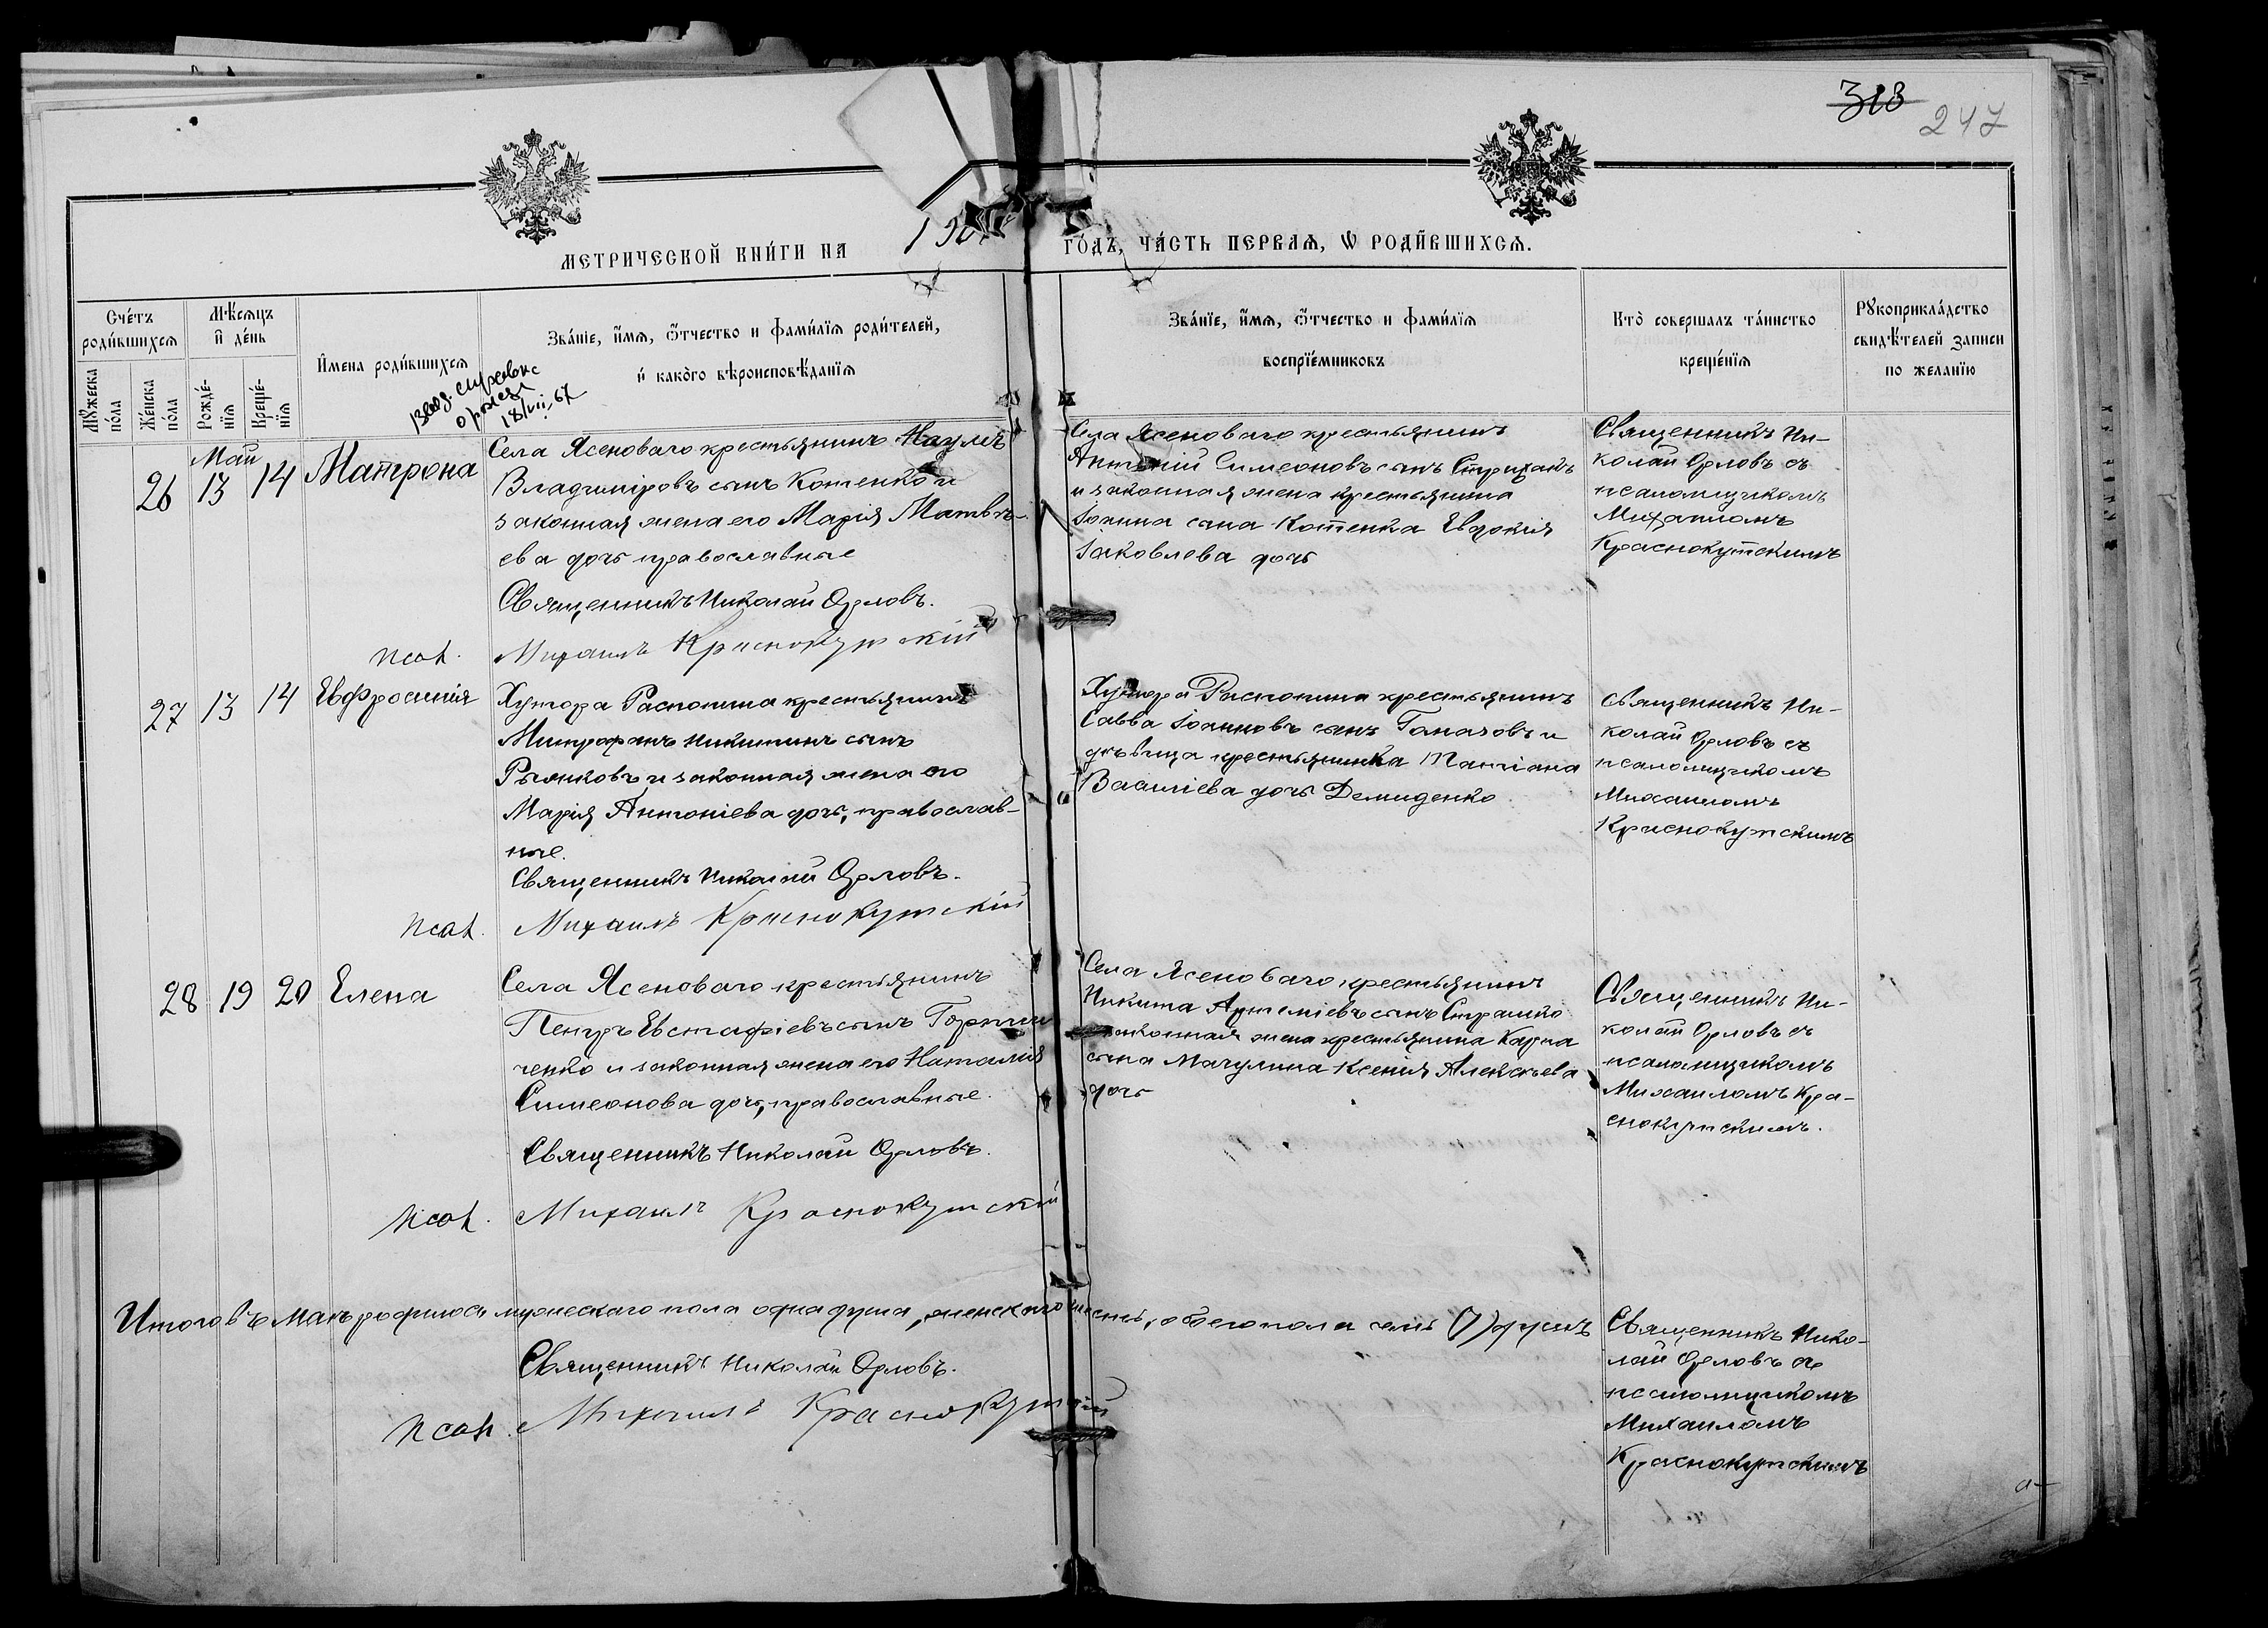 313
247
МЕТРИЧЕСКОЙ КНИ́ГИ НА
190
ГО́ДЪ, ЧА́СТЬ ПЕРВАѦ, Ѡ РОДИ́ВШИХСѦ.
Сче́тъ роди́вшихсѧ
Мѣ́сѧцъ и҆ де́нь
И҆мена роди́вшихсѧ
Зва́нїе, и҆́мѧ, ѻ҆́тчество и фами́лїѧ роди́телей,
и҆ како́го вѣроисповѣ́данїѧ
Зва́нїе, и҆́мѧ, ѻ҆́тчество и фами́лїѧ
воспрїе́мниковъ
Кто̀ соверша́лъ та́инство
креще́нїѧ
Рꙋкоприкла́дство
свидѣ́телей записи
по жела́нїю
Мꙋ́жеска по́ла
Же́нска по́ла
Рожде́нїѧ
Креще́нїѧ
18/VII-67
Май
26 13 14 Матрона
Села Ясеноваго крестьянинъ Наумъ
Владиміровъ сынъ Котенко и
законная жена его Марія Матвѣ-
ева дочь православные
Священникъ Николай Орловъ.
Псал. Михаилъ Краснокутскій
Села Ясеноваго крестьянинъ
Антоній Симеоновъ сынъ
и законная жена крестьянина
Іоанна сына Котенка Евдокія
Іаковлева дочь
Священникъ Ни-
колай Орловъ съ
псаломщикомъ
Михаиломъ
Краснокутскимъ
27 13 14 Евфросинія
Хутора крестьянинъ
Митрофанъ Никитинъ сынъ
Рыжковъ и законная жена его
Марія Антоніева дочь, православ-
ные.
Священникъ Николай Орловъ.
Псал. Михаилъ Краснокутскій
Хутора крестьянинъ
Савва Іоанновъ сынъ и
дѣвица крестьянка Татіана
Василіева дочь Демиденко
Священникъ Ни-
колай Орловъ съ
псаломщикомъ
Михаиломъ
Краснокутскимъ
28 19 20 Елена
Села Ясеноваго крестьянинъ
Петръ Евстафіевъ сынъ
ченко и законная жена его Наталія
Симеонова дочь, православные.
Священникъ Николай Орловъ.
Псал. Михаилъ Краснокутскій
Села Ясеноваго крестьянинъ
Никита Артеміевъ сынъ Страшко
законная жена крестьянина Карпа
сына Мачулина Ксенія Алексѣева
дочь
Священникъ Ни-
колай Орловъ съ
псаломщикомъ
Михаиломъ Кра-
снокутскимъ.
Итого въ маѣ родилось мужескаго пола одна душа, женскаго шесть, обоего пола семь (7) душъ
Священникъ Николай Орловъ.
Псал. Михаилъ Краснокутскій
Священникъ Нико-
лай Орловъ съ
псаломщикомъ
Михаиломъ
Краснокутскимъ